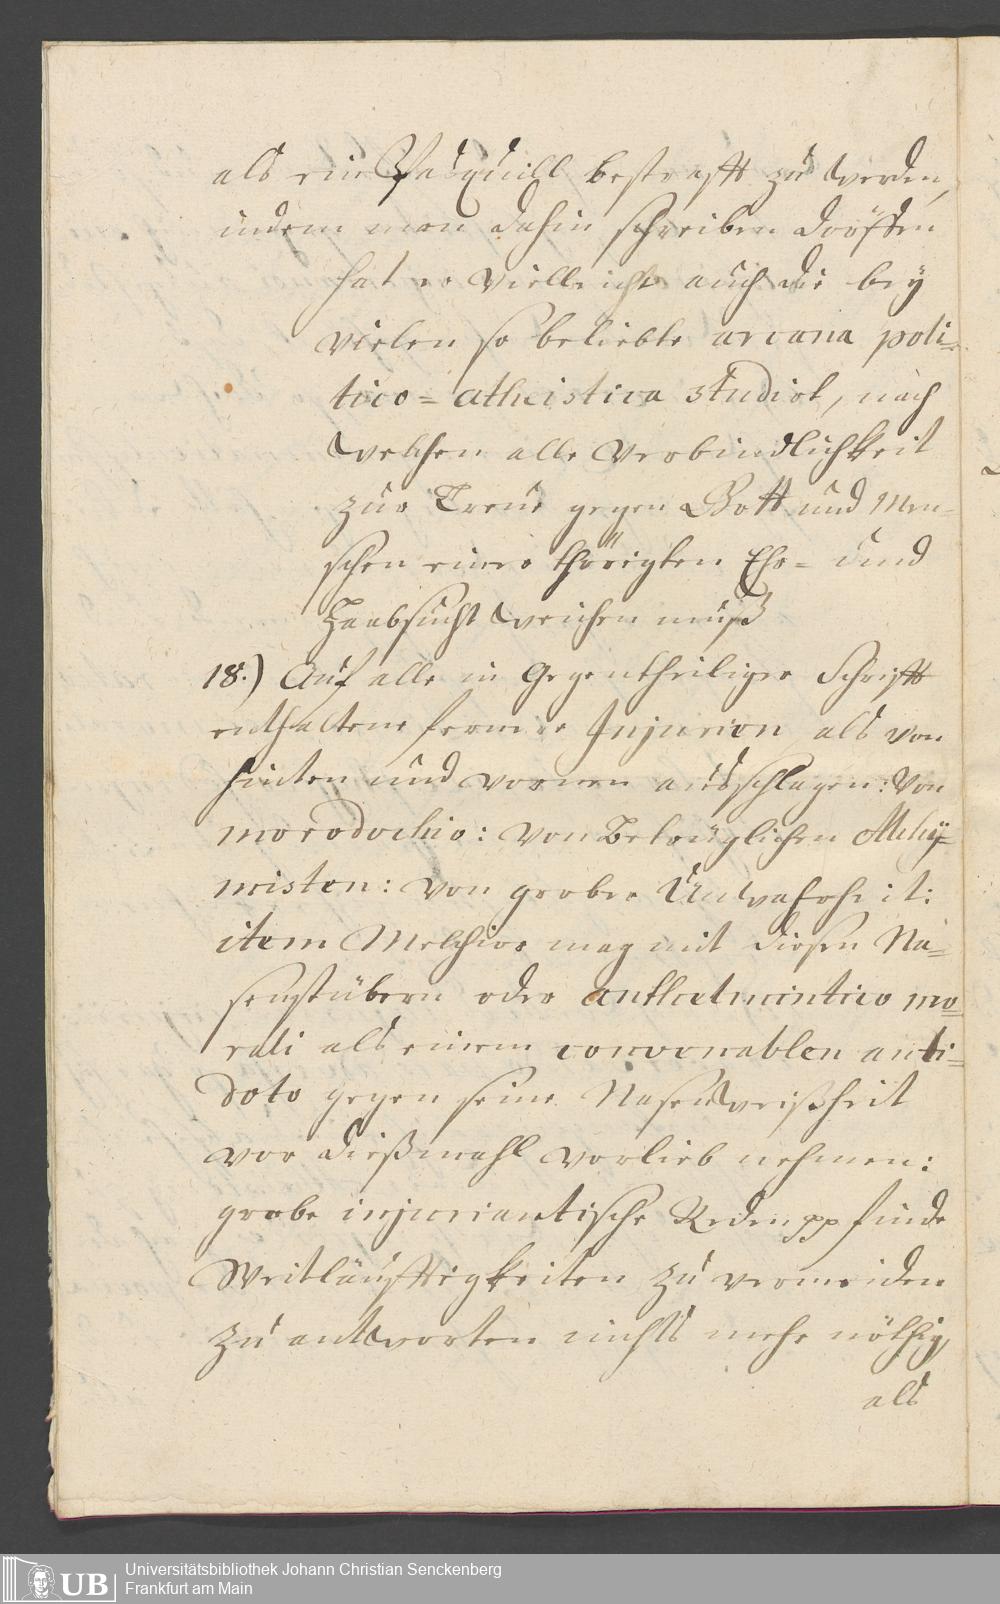 als ein Pasquill bestrafft zu werden,
indem man dahin schreiben dörffen
hat er vielleicht auch die bey
vielen so beliebte arcana poli-
tico-atheistica studirt, nach
welchen alle Verbindlichkeit
zur Treue gegen Gott und Men-
schen einer thörigten Ehr- und
Haabsucht weichen muß
18.) Auf alle in Gegentheiliger Schrifft
enthaltene fernere Injurien als von
hinten und vornen ausschlagen: von
morodochio: von Betrüglichen Alchy-
misten: von grober Unwahrheit:
item Melchior mag mit diesen Na-
senstübern oder anthelmintico mo-
rali als einem convenablen anti-
doto gegen seine Nasenweißheit
vor dießmahl vorlieb nehmen:
grobe injuriantische Reden pp finde
Weitläufftigkeiten zu vermeiden
zu antworten nichts mehr nöthig,
als
Universitätsbibliothek Johann Christian Senckenberg
Frankfurt am Main
UB